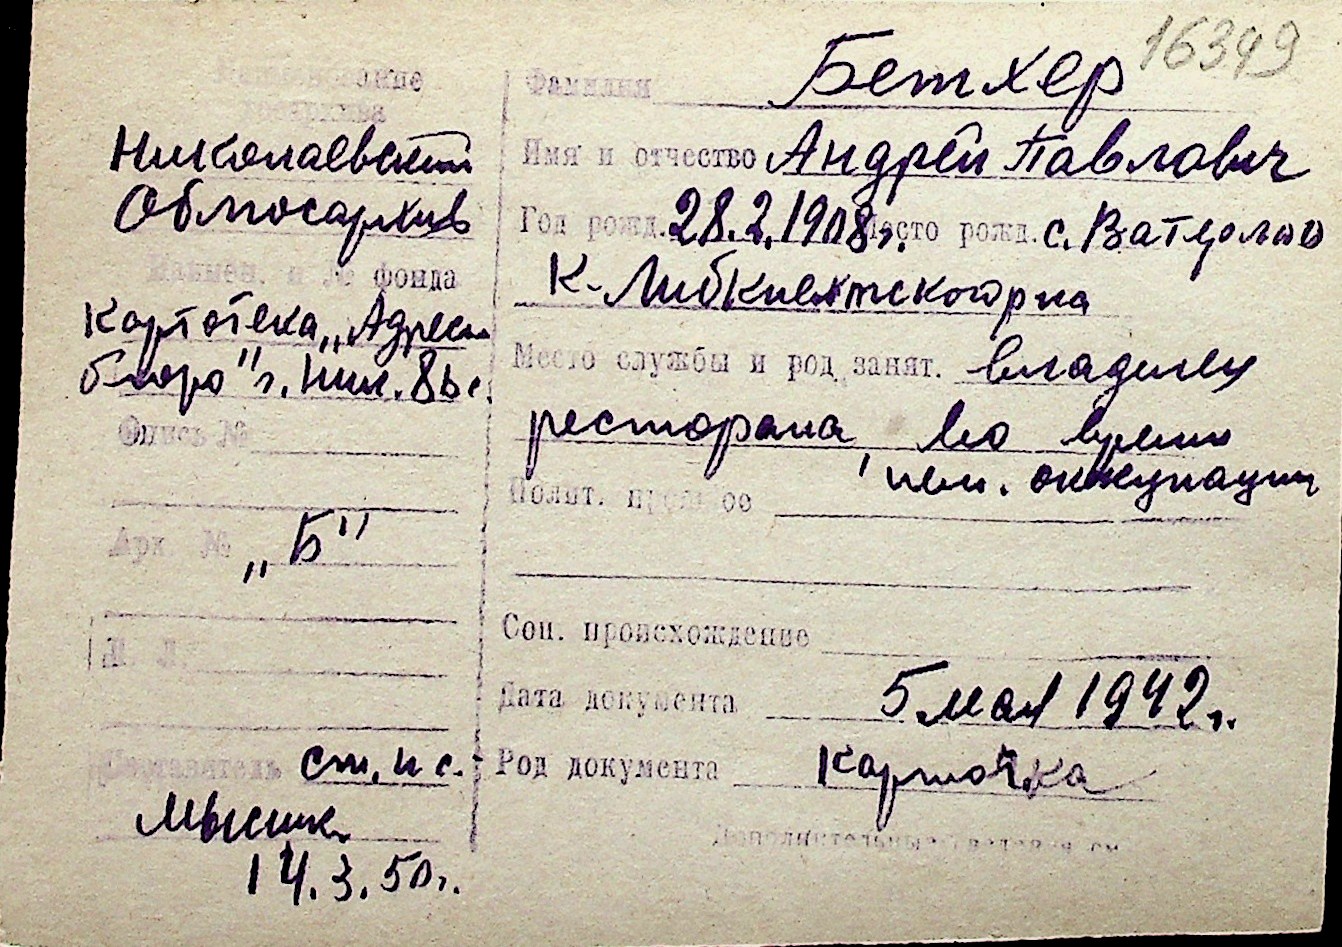 16349
Наименование
госархива
Николаевский
Облгосархив
Наимен. и № фонда
Картотека „Адресн
бюро" г. Ник. 8ве.
Опись №
Арх. №
„Б"
Л. Л.
Составитель ст. н с.
Мысик
14.3.50г.
Фамилия Бетхер
Имя и отчество Андрей Павлович
Год рожд. 28.2.1908г. Место рожд. с.
К. Либкнехтского р-на
Место службы и род занят. владелец
ресторана, во время
нем. оккупации
Полит. прошлое
Соц. происхождение
Дата документа 5 мая 1942г.
Род документа Карточка
Дополнительные сведения см.